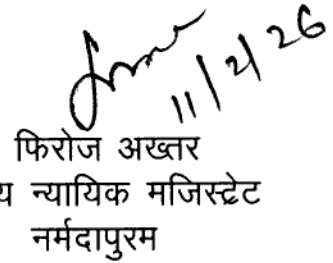 11/2/26
फिरोज अख्तर
य न्यायिक मजिस्ट्रेट
नर्मदापुरम